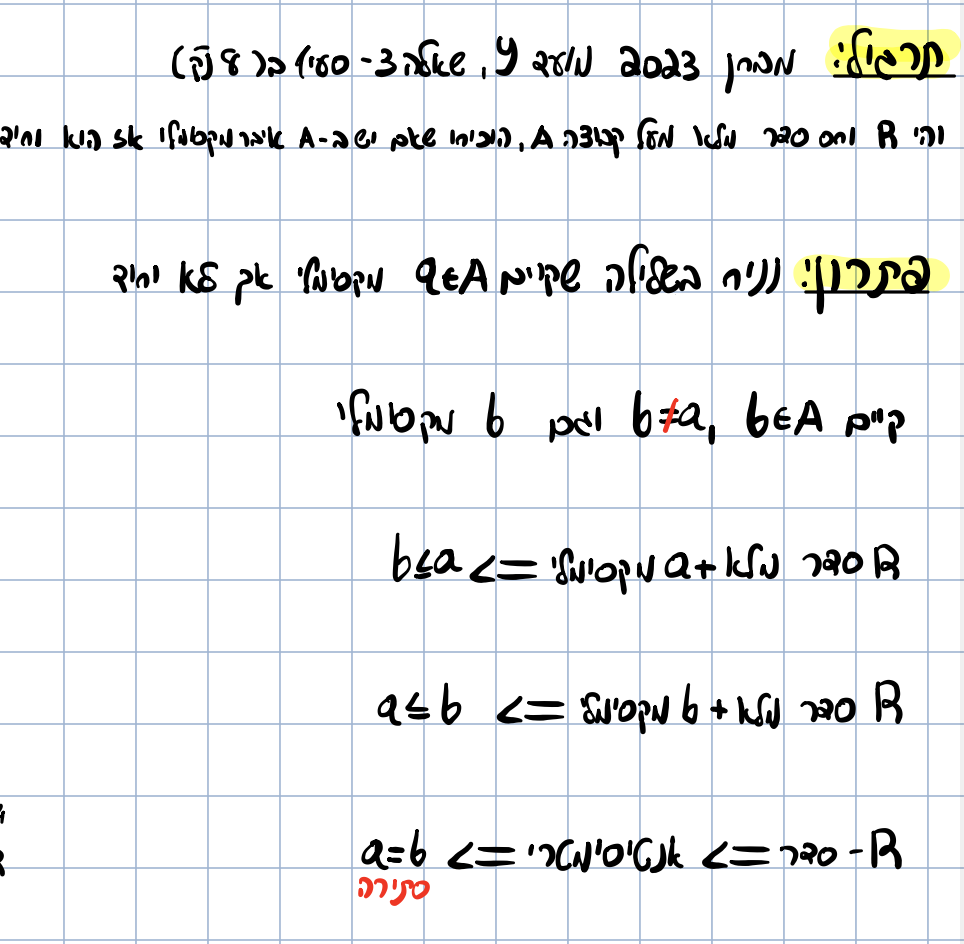 תרגיל: מבחן 2023 מועד y, שאלה 3- סעיף ב (8 נק)
יהי R יחס סדר מלא מעל קבוצה A, הוכיחו שאם יש ב-A איבר מקסימלי אז הוא יחיד
פתרון: נניח בשלילה שקיים a∈A מקסימלי אך לא יחיד
קיים b∈A, b≠a וגם b מקסימלי
R סדר מלא + a מקסימלי => b≤a
R סדר מלא + b מקסימלי => a≤b
R - סדר => אנטיסימטרי => a=b
סתירה